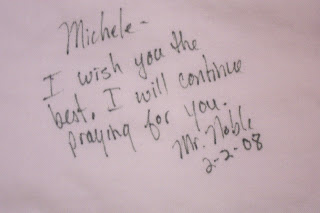 Michele-
I wish you the
best. I will continue
praying for you.
Mr. Noble
2-2-08